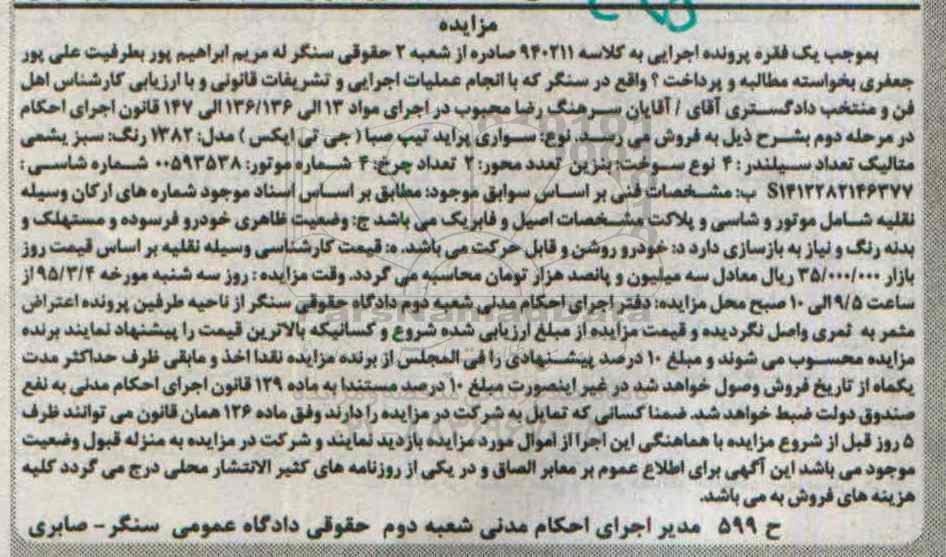 مزایده
بموجب یک فقره پرونده اجرایی به کلاسه ۹۴۰۲۱۱ صادره از شعبه ۲ حقوقی سنگر له مریم ابراهیم پور بطرفیت علی پور
جعفری بخواسته مطالبه و پرداخت ؟ واقع در سنگر که با انجام عملیات اجرایی و تشریفات قانونی و با ارزیابی کارشناس اهل
فن و منتخب دادگستری آقای / آقایان سرهنگ رضا محبوب در اجرای مواد ۱۳ الی ۱۳۶/۱۳۶ الی ۱۴۷ قانون اجرای احکام
در مرحله دوم بشرح ذیل به فروش می رسد. نوع: سواری پراید تیپ صبا ( جی تی ایکس ) مدل: ۱۳۸۲ رنگ: سبز یشمی
متالیک تعداد سیلندر : ۴ نوع سوخت: بنزین تعدد محور: ۲ تعداد چرخ: ۴ شماره موتور: ۰۰۵۹۳۵۳۸ شماره شاسی :
S۱۴۱۲۲۸۲۱۴۶۳۷۷ ب: مشخصات فنی بر اساس سوابق موجود: مطابق بر اساس اسناد موجود شماره های ارکان وسیله
نقلیه شامل موتور و شاسی و پلاکت مشخصات اصیل و فابریک می باشد ج: وضعیت ظاهری خودرو فرسوده و مستهلک و
بدنه رنگ و نیاز به بازسازی دارد د: خودرو روشن و قابل حرکت می باشد. ه: قیمت کارشناسی وسیله نقلیه بر اساس قیمت روز
بازار ۳۵/۰۰۰/۰۰۰ ریال معادل سه میلیون و پانصد هزار تومان محاسبه می گردد. وقت مزایده : روز سه شنبه مورخه ۹۵/۳/۴ از
ساعت ۹/۵ الی ۱۰ صبح محل مزایده: دفتر اجرای احکام مدنی شعبه دوم دادگاه حقوقی سنگر از ناحیه طرفین پرونده اعتراض
مثمر به ثمری واصل نگردیده و قیمت مزایده از مبلغ ارزیابی شده شروع و کسانیکه بالاترین قیمت را پیشنهاد نمایند برنده
مزایده محسوب می شوند و مبلغ ۱۰ درصد پیشنهادی را فی المجلس از برنده مزایده نقدا اخذ و مابقی ظرف حداکثر مدت
یکماه از تاریخ فروش وصول خواهد شد در غیر اینصورت مبلغ ۱۰ درصد مستندا به ماده ۱۲۹ قانون اجرای احکام مدنی به نفع
صندوق دولت ضبط خواهد شد. ضمنا کسانی که تمایل به شرکت در مزایده را دارند وفق ماده ۱۲۶ همان قانون می توانند ظرف
۵ روز قبل از شروع مزایده با هماهنگی این اجرا از اموال مورد مزایده بازدید نمایند و شرکت در مزایده به منزله قبول وضعیت
موجود می باشد این آگهی برای اطلاع عموم بر معابر الصاق و در یکی از روزنامه های کثیر الانتشار محلی درج می گردد کلیه
هزینه های فروش به می باشد.
ح ۵۹۹ مدیر اجرای احکام مدنی شعبه دوم حقوقی دادگاه عمومی سنگر - صابری
ParsNamadData